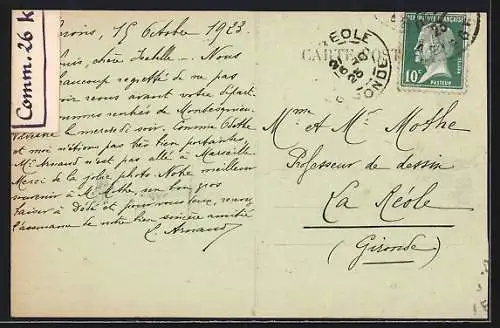 Comm. 26 K
15 Octobre 1923
chère Isabelle — Nous
beaucoup regretté de ne pas
vous revus avant votre départ
sommes rentrés de Montesquieu
le mercredi soir. Comme Odette
et moi n'étions pas très bien portantes
Mr Arnaud n'est pas allé à Marseille.
Merci de la jolie photo Notre meilleur
souvenir à Mr Mothe, un bon gros
baiser à Dédé et pour vous deux, recevez
l'assurance de notre bien sincère amitié
L. Arnaud
CARTE POST
EOLE
RONDE
REPUBLIQUE FRANÇAISE
POSTES
10c
PASTEUR
M. et Me Mothe
Professeur de dessin
La Réole
(Gironde)